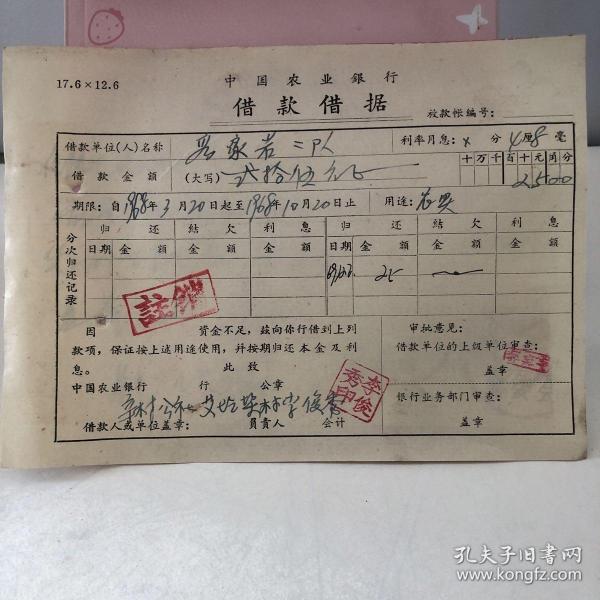 17.6×12.6
中国农业银行
借款借据
放款帐编号:
借款单位(人)名称 岩家岩二队 利率月息: 分4厘8毫
借款金额 (大写) 弍拾伍元 十万千百十元角分 2500
期限:自1968年3月20日起至1968年10月20日止 用途:农贷
分次归还记录
归还 结欠 利息 归还 结欠 利息
日期 金额 金额 金额 日期 金额 金额 金额
25
註销
因 资金不足,兹向你行借到上列
款项,保证按上述用途使用,并按期归还本金及利
息。 此致
中国农业银行 行 公章
李俊秀印
借款人或单位盖章: 负责人 会计
审批意见:
借款单位的上级单位审查:
盖章
银行业务部门审查:
盖章
孔夫子旧书网
www.kongfz.com